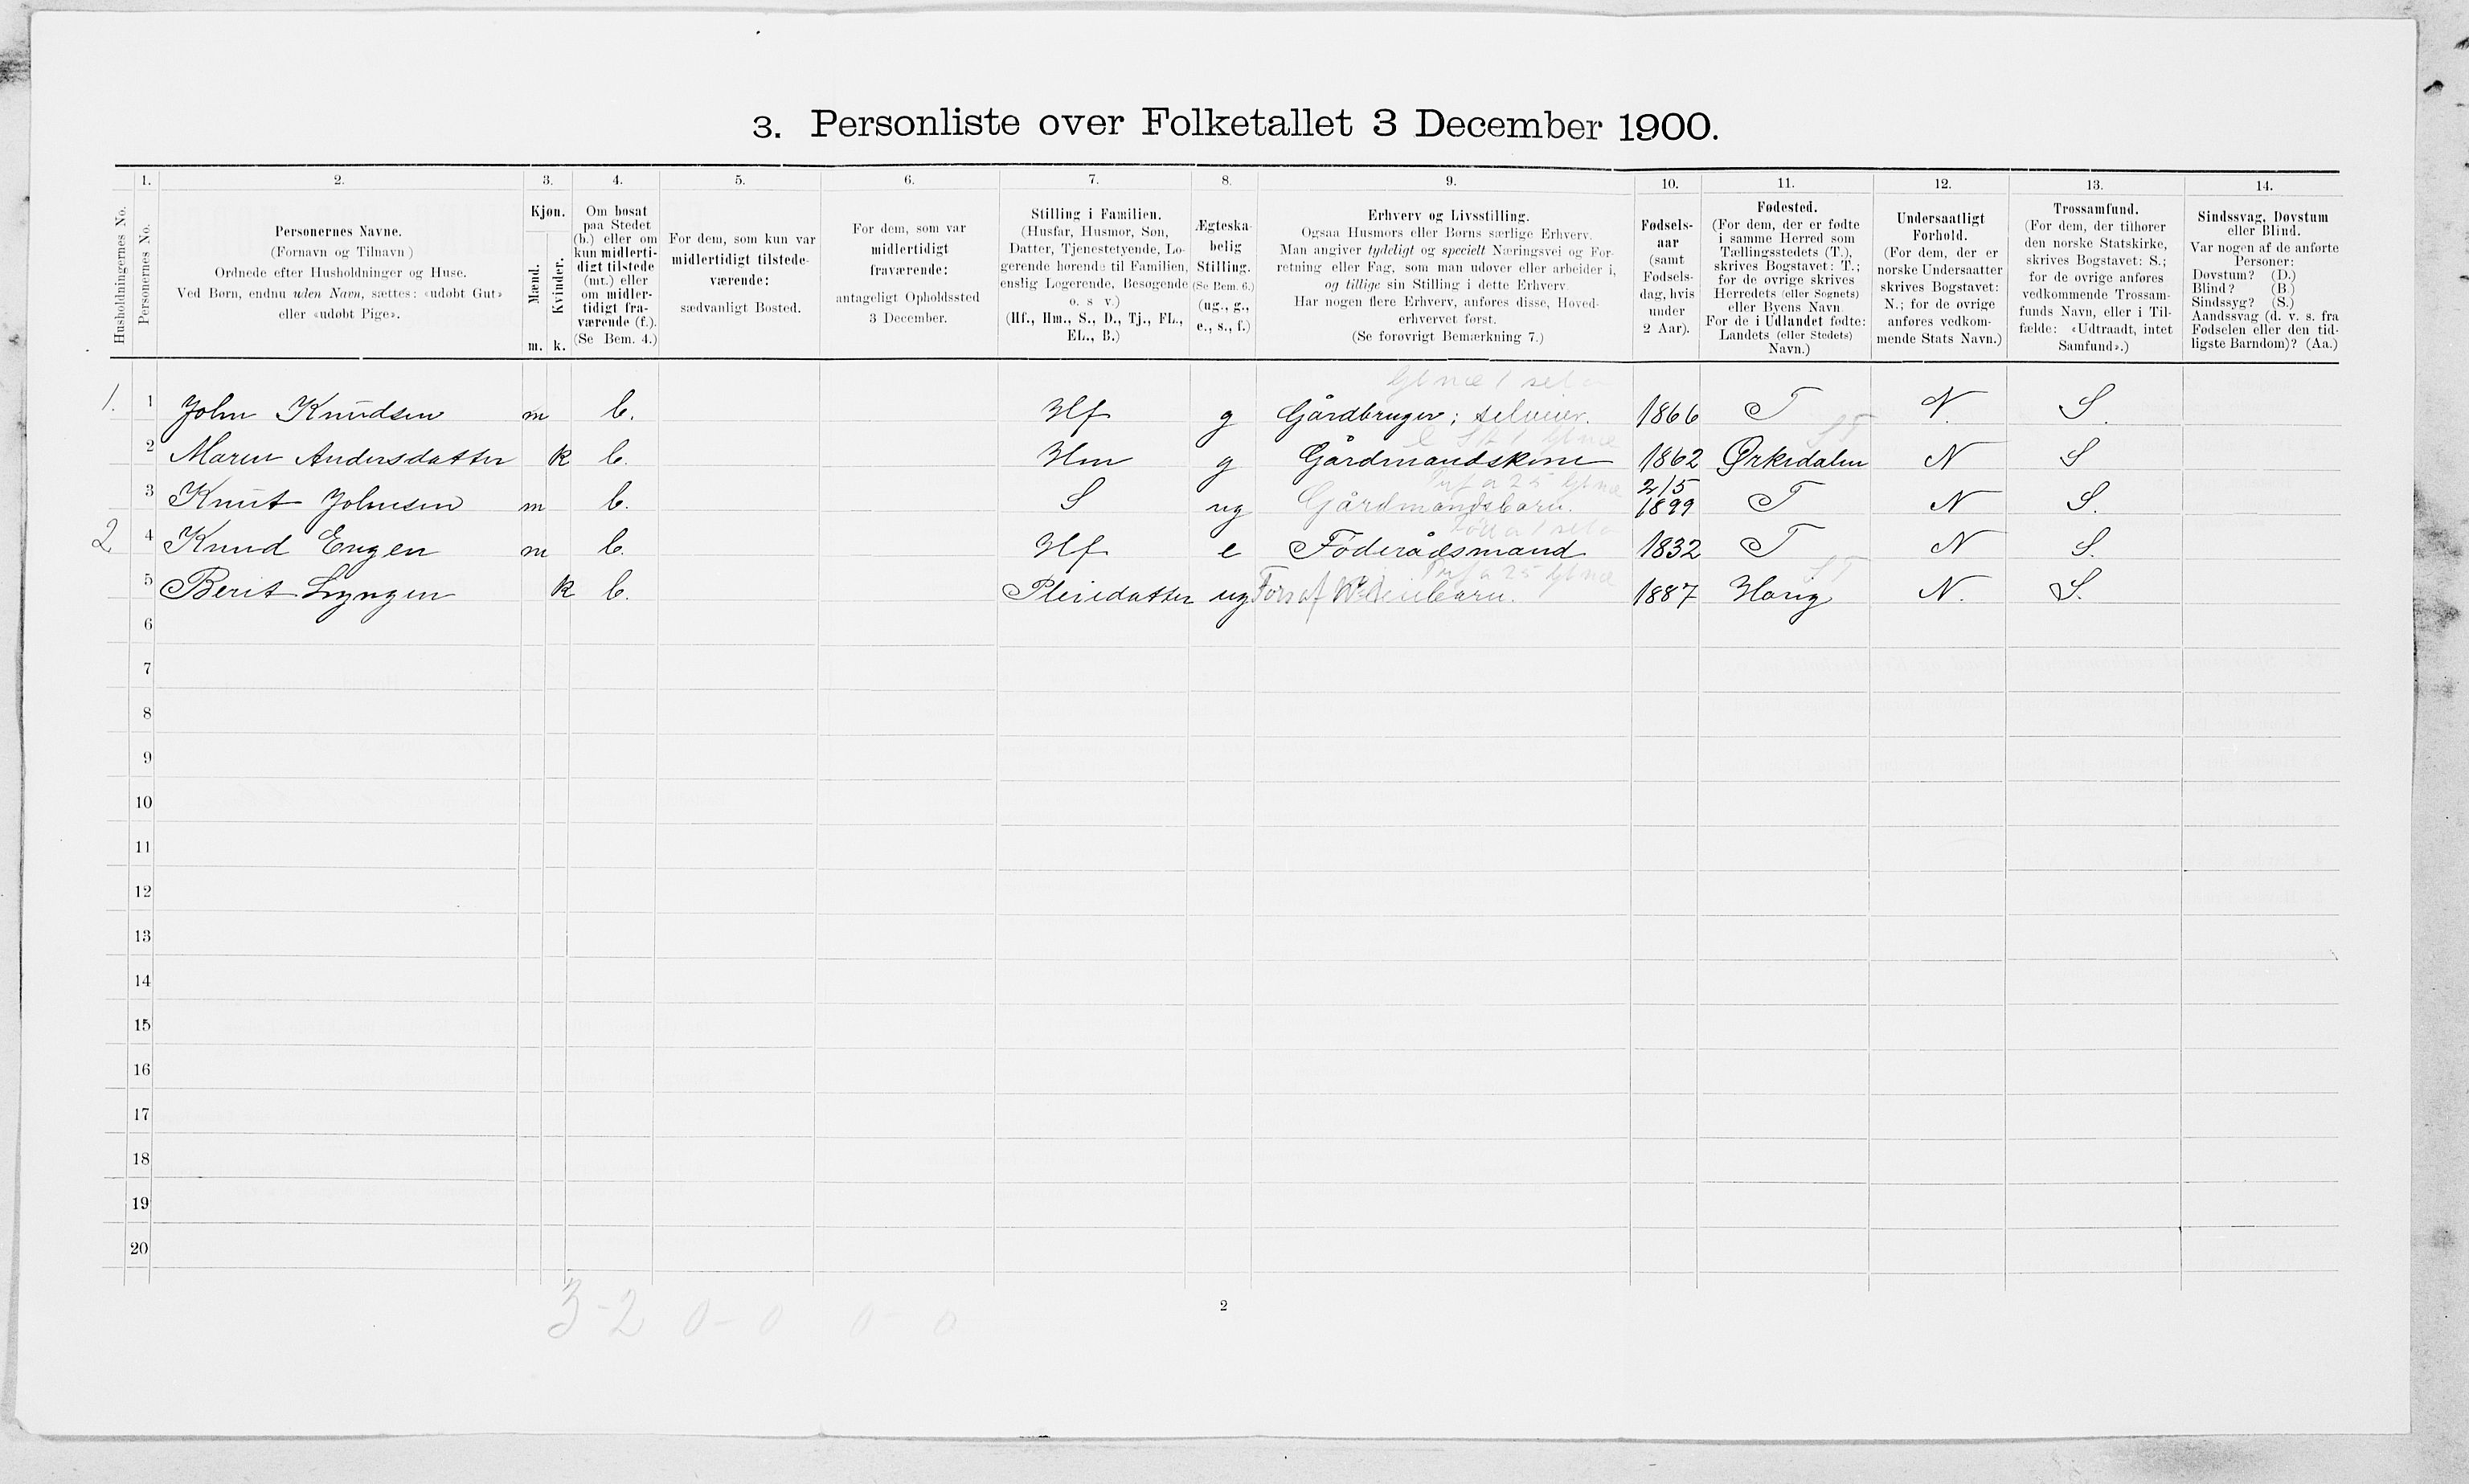 3. Personliste over Folketallet 3 December 1900.
1. 2. 3. 4. 5. 6. 7. 8. 9. 10. 11. 12. 13. 14.
Husholdningernes No.
Personernes No.
Personernes Navne.
(Fornavn og Tilnavn)
Ordnede efter Husholdninger og Huse.
Ved Børn, endnu uden Navn, sættes: «udøbt Gut»
eller «udøbt Pige».
Kjøn.
Mænd.
Kvinder.
m. k.
Om bosat
paa Stedet
(b.) eller om
kun midlerti-
digt tilstede
(mt.) eller
om midler-
tidigt fra-
værende (f.).
(Se Bem. 4.)
For dem, som kun var
midlertidigt tilstede-
værende:
sædvanligt Bosted.
For dem, som var
midlertidigt
fraværende:
antageligt Opholdssted
3 December.
Stilling i Familien.
(Husfar, Husmor, Søn,
Datter, Tjenestetyende, Lo-
gerende hørende til Familien,
enslig Logerende, Besøgende
o. s. v.)
(Hf., Hm., S., D., Tj., FL.,
EL., B.)
Ægteska-
belig
Stilling.
(Se Bem. 6.)
(ug., g.,
e., s., f.)
Erhverv og Livsstilling.
Ogsaa Husmors eller Børns særlige Erhverv.
Man angiver tydeligt og specielt Næringsvei og For-
retning eller Fag, som man udøver eller arbeider i,
og tillige sin Stilling i dette Erhverv.
Har nogen flere Erhverv, anføres disse, Hoved-
erhvervet først.
(Se forøvrigt Bemærkning 7.)
Fødsels-
aar
(samt
Fødsels-
dag, hvis
under
2 Aar).
Fødested.
(For dem, der er fødte
i samme Herred som
Tællingsstedets (T.),
skrives Bogstavet: T.;
for de øvrige skrives
Herredets (eller Sognets)
eller Byens Navn.
For de i Udlandet fødte:
Landets (eller Stedets)
Navn.)
Undersaatligt
Forhold.
(For dem, der er
norske Undersaatter
skrives Bogstavet:
N.; for de øvrige
anføres vedkom-
mende Stats Navn.)
Trossamfund.
(For dem, der tilhører
den norske Statskirke,
skrives Bogstavet: S.;
for de øvrige anføres
vedkommende Trossam-
funds Navn, eller i Til-
fælde: «Udtraadt, intet
Samfund».)
Sindssvag, Døvstum
eller Blind.
Var nogen af de anførte
Personer:
Døvstum? (D.)
Blind? (B.)
Sindssyg? (S.)
Aandssvag (d. v. s. fra
Fødselen eller den tid-
ligste Barndom)? (Aa.)
1. 1 John Knudsen m b. Hf g Gårdbruger; selveier. 1866 T N. S.
2 Maren Andersdatter k b. Hm g Gårdmandskone 1862 Ørkedalen N S
3 Knut Johnsen m b. S ug Gårdmandsbarn. 2/5 1899 T N S.
2 4 Knud Engen m b. Hf e Föderådsmand 1832 T N S.
5 Berit Lyngen k b. Pleiedatter ug Fors af 1887 Horig N. S.
6
7
8
9
10
11
12
13
14
15
16
17
18
19
20
3-2 0-0 0-0
2